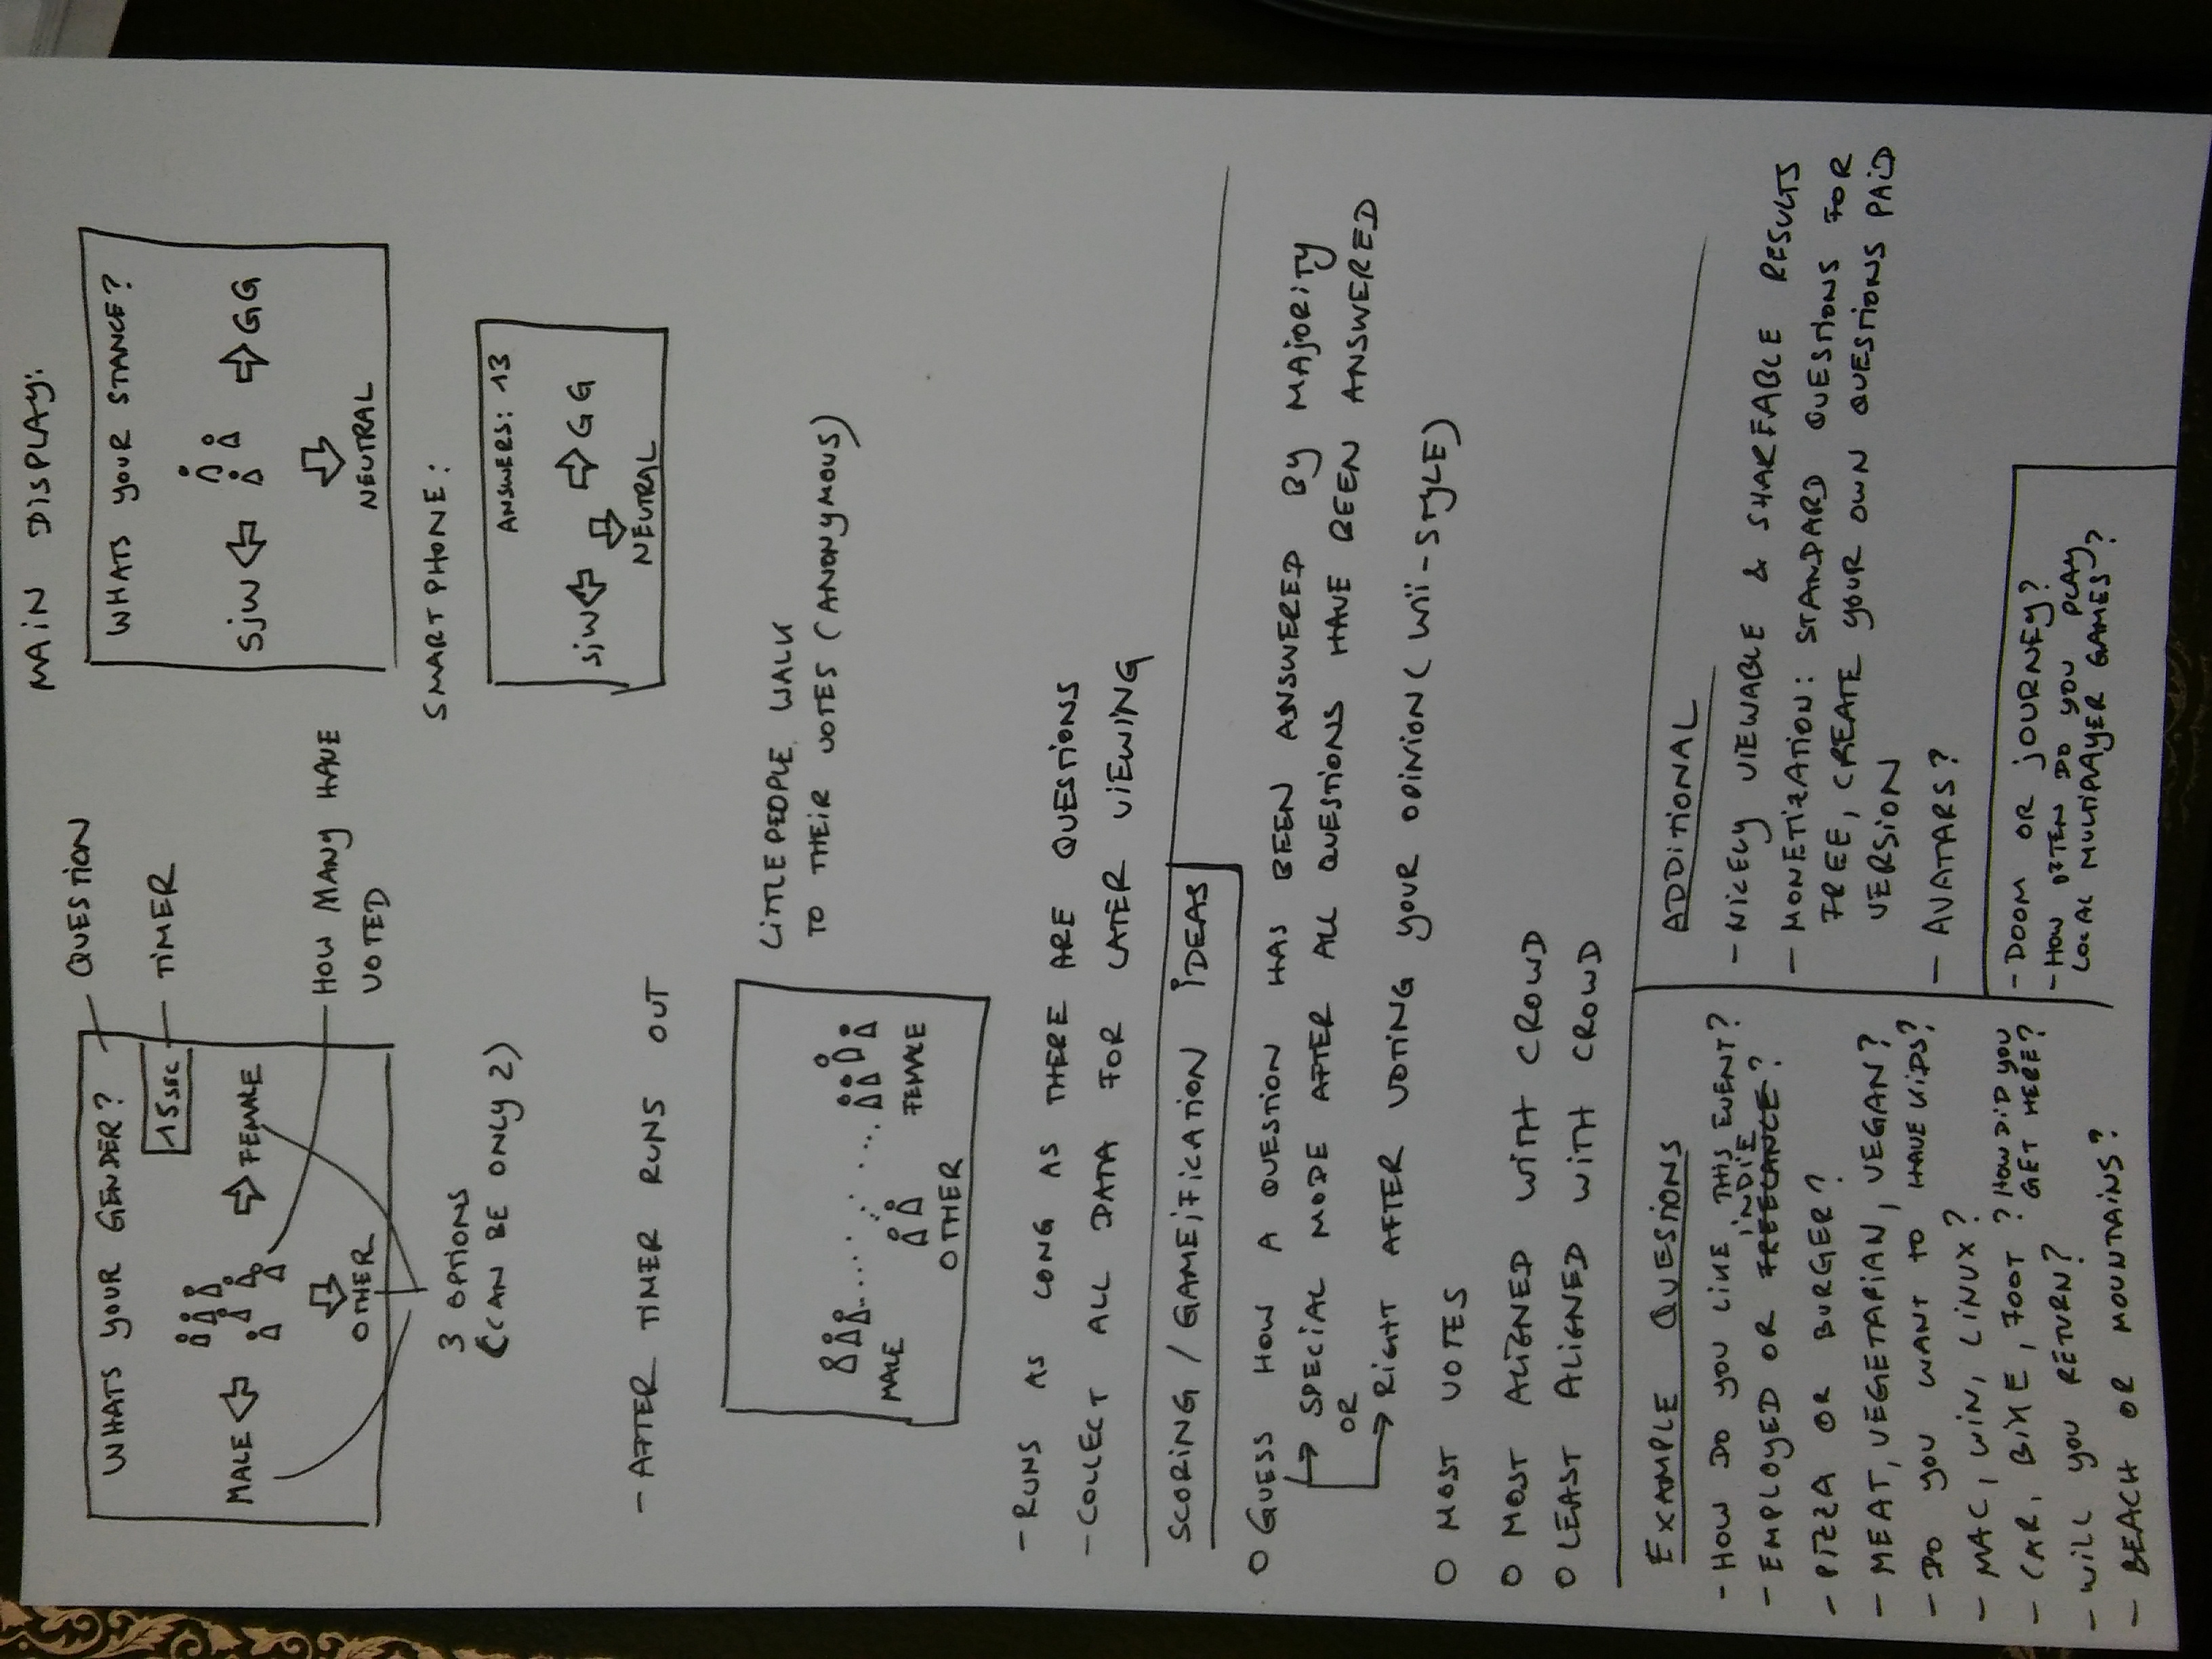 WHATS YOUR GENDER?
QUESTION
15 SEC
TIMER
MALE
FEMALE
OTHER
HOW MANY HAVE
VOTED
3 OPTIONS
(CAN BE ONLY 2)
MAIN DISPLAY:
WHATS YOUR STANCE?
SJW
GG
NEUTRAL
SMARTPHONE:
ANSWERS: 13
SJW
GG
NEUTRAL
- AFTER TIMER RUNS OUT
MALE
OTHER
FEMALE
LITTLE PEOPLE WALK
TO THEIR VOTES (ANONYMOUS)
- RUNS AS LONG AS THERE ARE QUESTIONS
- COLLECT ALL DATA FOR LATER VIEWING
SCORING / GAMEIFICATION IDEAS
O GUESS HOW A QUESTION HAS BEEN ANSWERED BY MAJORITY
→ SPECIAL MODE AFTER ALL QUESTIONS HAVE BEEN ANSWERED
OR
→ RIGHT AFTER VOTING YOUR OPINION (WII-STYLE)
O MOST VOTES
O MOST ALIGNED WITH CROWD
O LEAST ALIGNED WITH CROWD
EXAMPLE QUESTIONS
- HOW DO YOU LIKE THIS EVENT?
INDIE
- EMPLOYED OR FREELANCE?
- PIZZA OR BURGER?
- MEAT, VEGETARIAN, VEGAN?
- DO YOU WANT TO HAVE KIDS?
- MAC, WIN, LINUX?
- CAR, BIKE, FOOT? HOW DID YOU
GET HERE?
- WILL YOU RETURN?
- BEACH OR MOUNTAINS?
ADDITIONAL
- NICELY VIEWABLE & SHAREABLE RESULTS
- MONETIZATION: STANDARD QUESTIONS FOR
FREE, CREATE YOUR OWN QUESTIONS PAID
VERSION
- AVATARS?
- DOOM OR JOURNEY?
- HOW OFTEN DO YOU PLAY
LOCAL MULTIPLAYER GAMES?